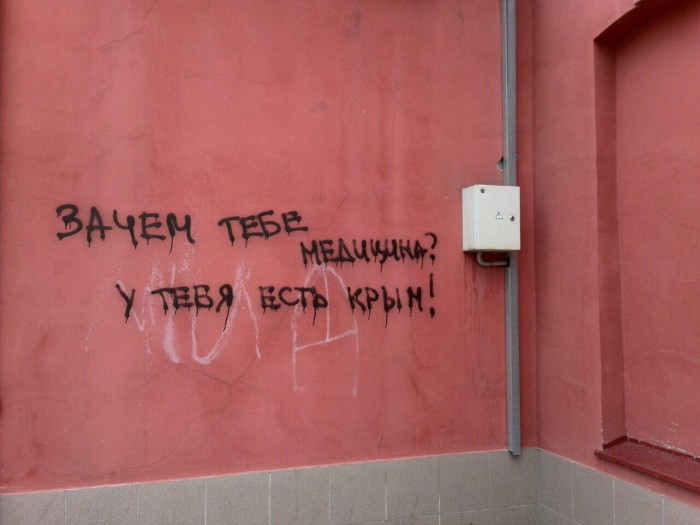 ЗАЧЕМ ТЕБЕ
МЕДИЦИНА?
У ТЕБЯ ЕСТЬ КРЫМ!